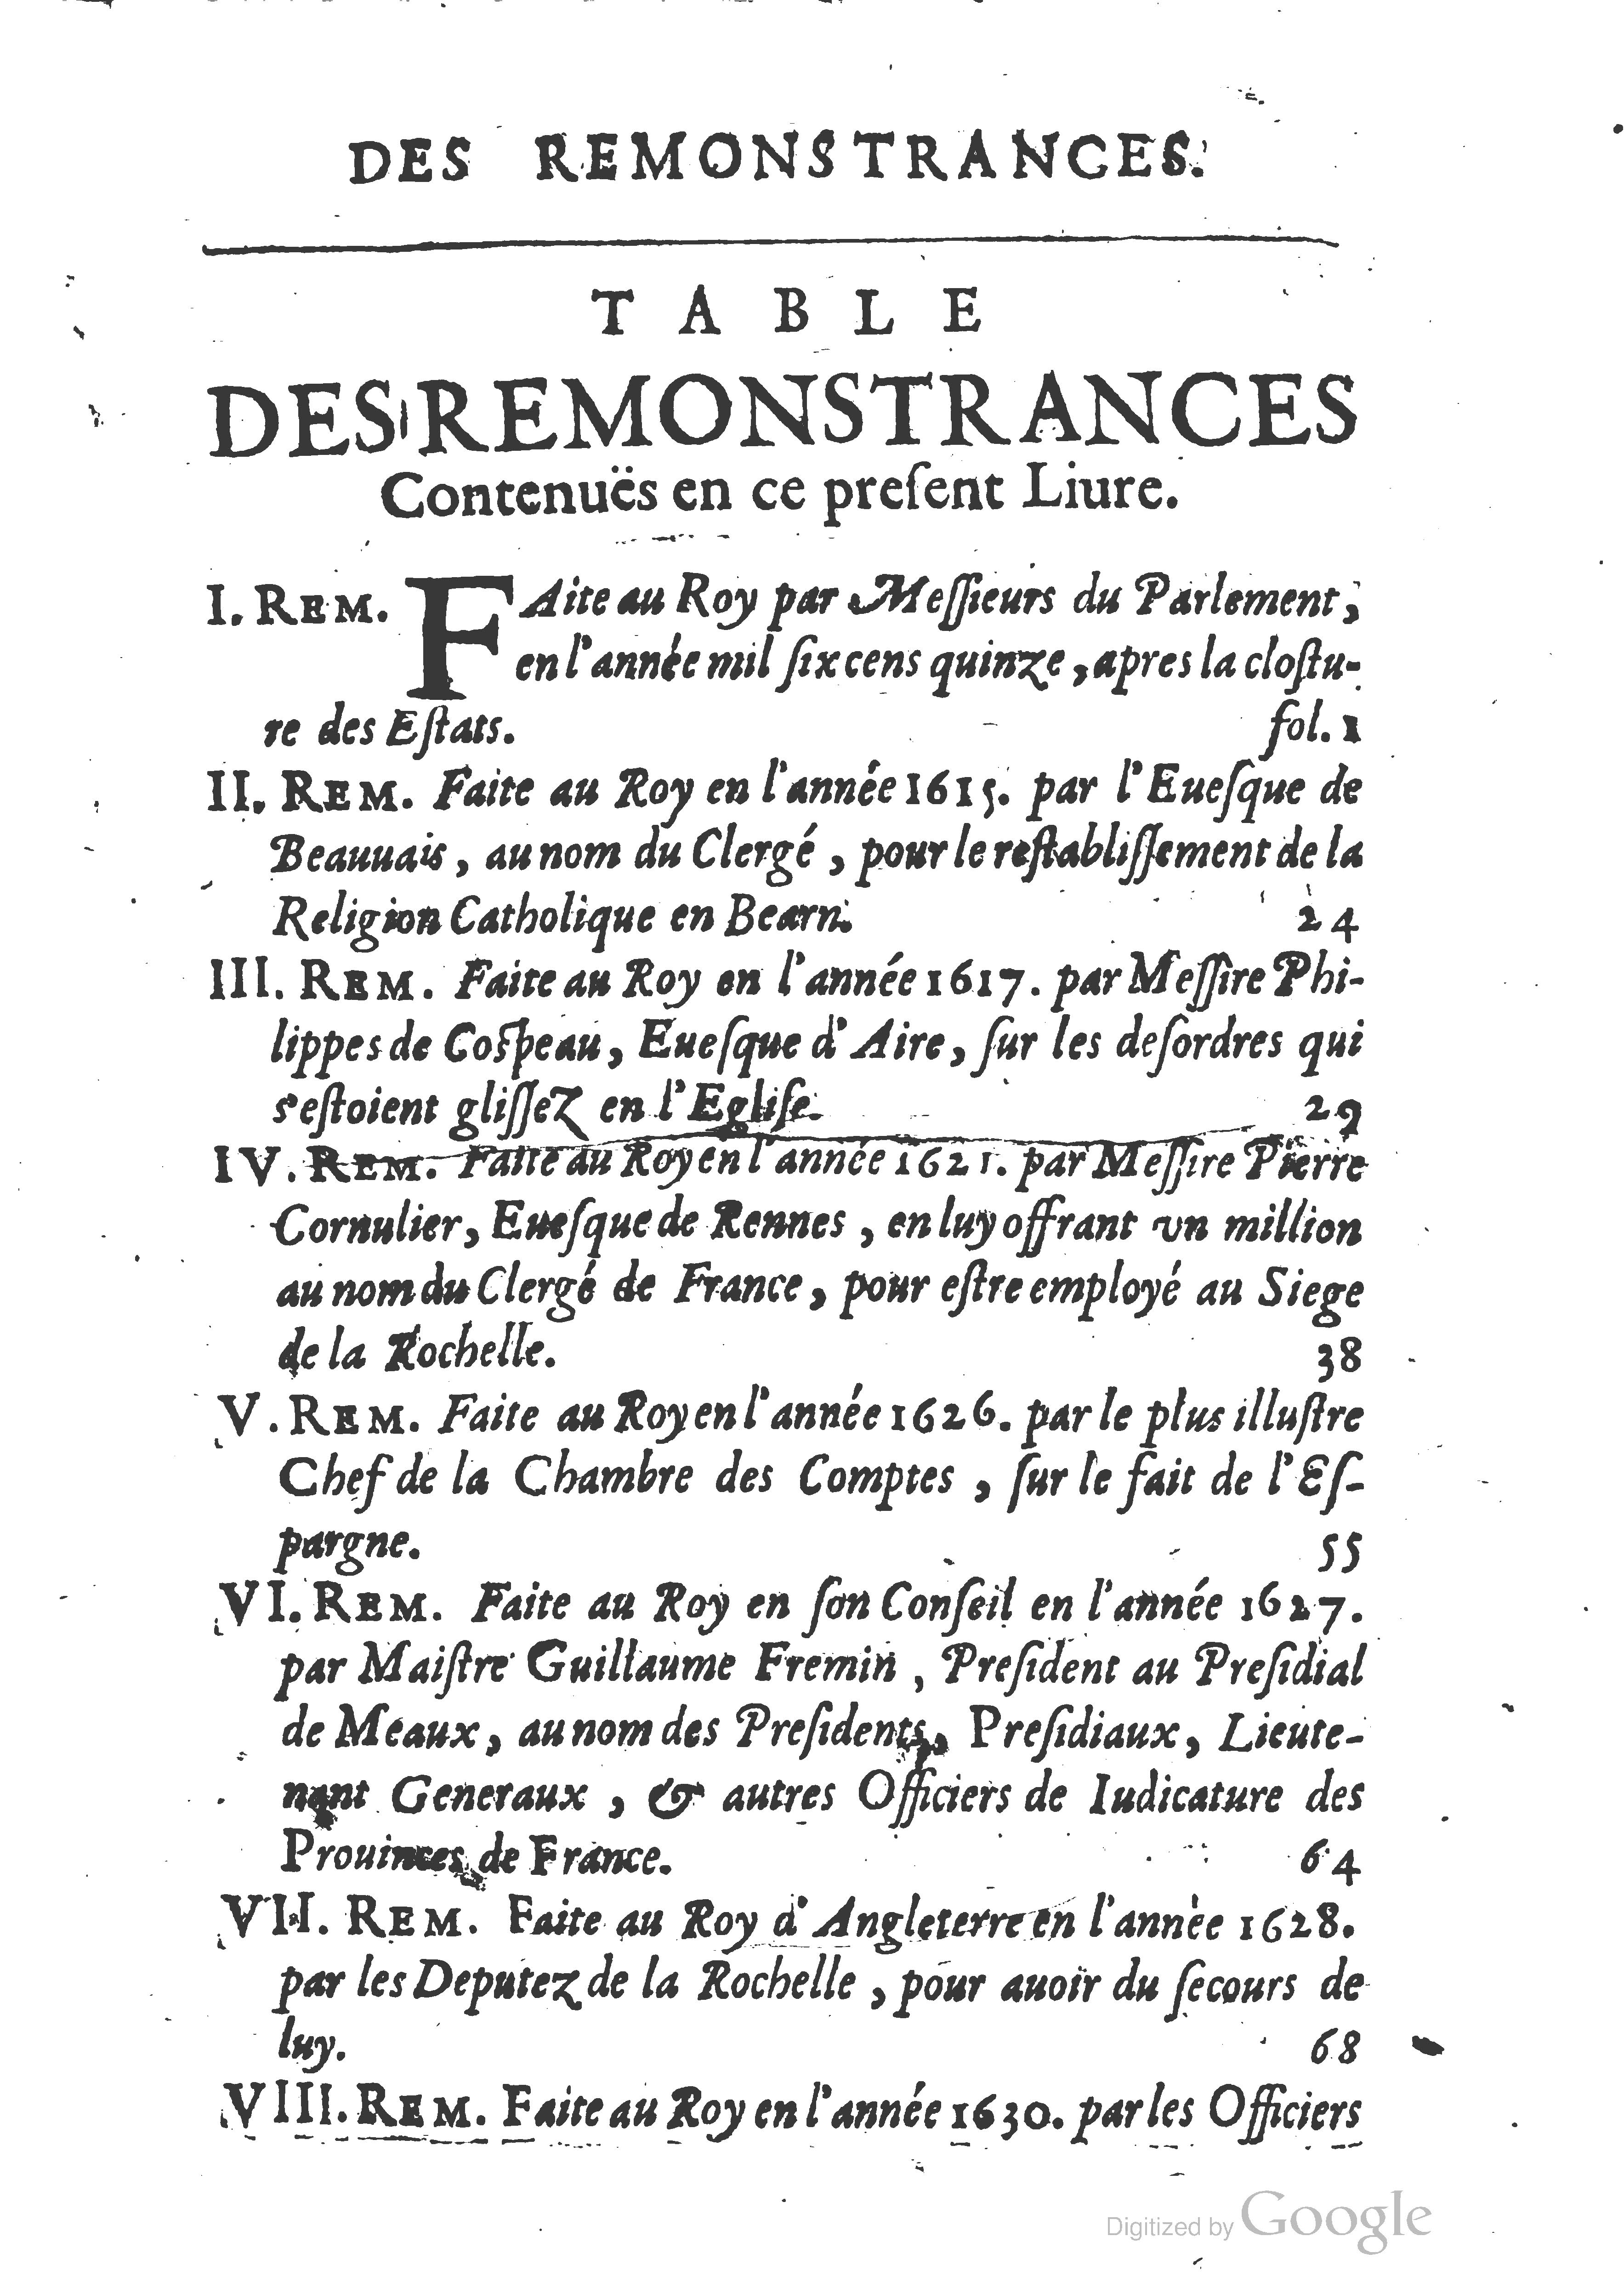 DES REMONSTRANCES.
TABLE
DES REMONSTRANCES
Contenuës en ce preſent Liure.
I. REM. FAite au Roy par Meſſieurs du Parlement,
en l'année mil ſix cens quinze, apres la cloſtu-
re des Eſtats. fol. 1
II. REM. Faite au Roy en l'année 1615. par l'Eueſque de
Beauuais, au nom du Clergé, pour le reſtabliſſement de la
Religion Catholique en Bearn. 24
III. REM. Faite au Roy en l'année 1617. par Meſſire Phi-
lippes de Coſpeau, Eueſque d'Aire, ſur les deſordres qui
s'eſtoient gliſſez en l'Egliſe. 29
IV. REM. Faite au Roy en l'année 1621. par Meſſire Pierre
Cornulier, Eueſque de Rennes, en luy offrant vn million
au nom du Clergé de France, pour eſtre employé au Siege
de la Rochelle. 38
V. REM. Faite au Roy en l'année 1626. par le plus illuſtre
Chef de la Chambre des Comptes, ſur le fait de l'Eſ-
pargne. 55
VI. REM. Faite au Roy en ſon Conſeil en l'année 1627.
par Maiſtre Guillaume Fremin, Preſident au Preſidial
de Meaux, au nom des Preſidents, Preſidiaux, Lieute-
nant Generaux, & autres Officiers de Iudicature des
Prouinces de France. 64
VII. REM. Faite au Roy d'Angleterre en l'année 1628.
par les Deputez de la Rochelle, pour auoir du ſecours de
luy. 68
VIII. REM. Faite au Roy en l'année 1630. par les Officiers
Digitized by Google